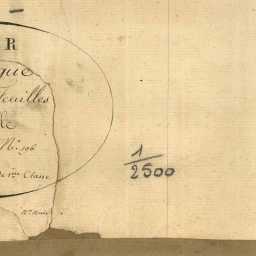 R
que
Feuilles
le
N.º 196
de 1.re Classe
1/2500